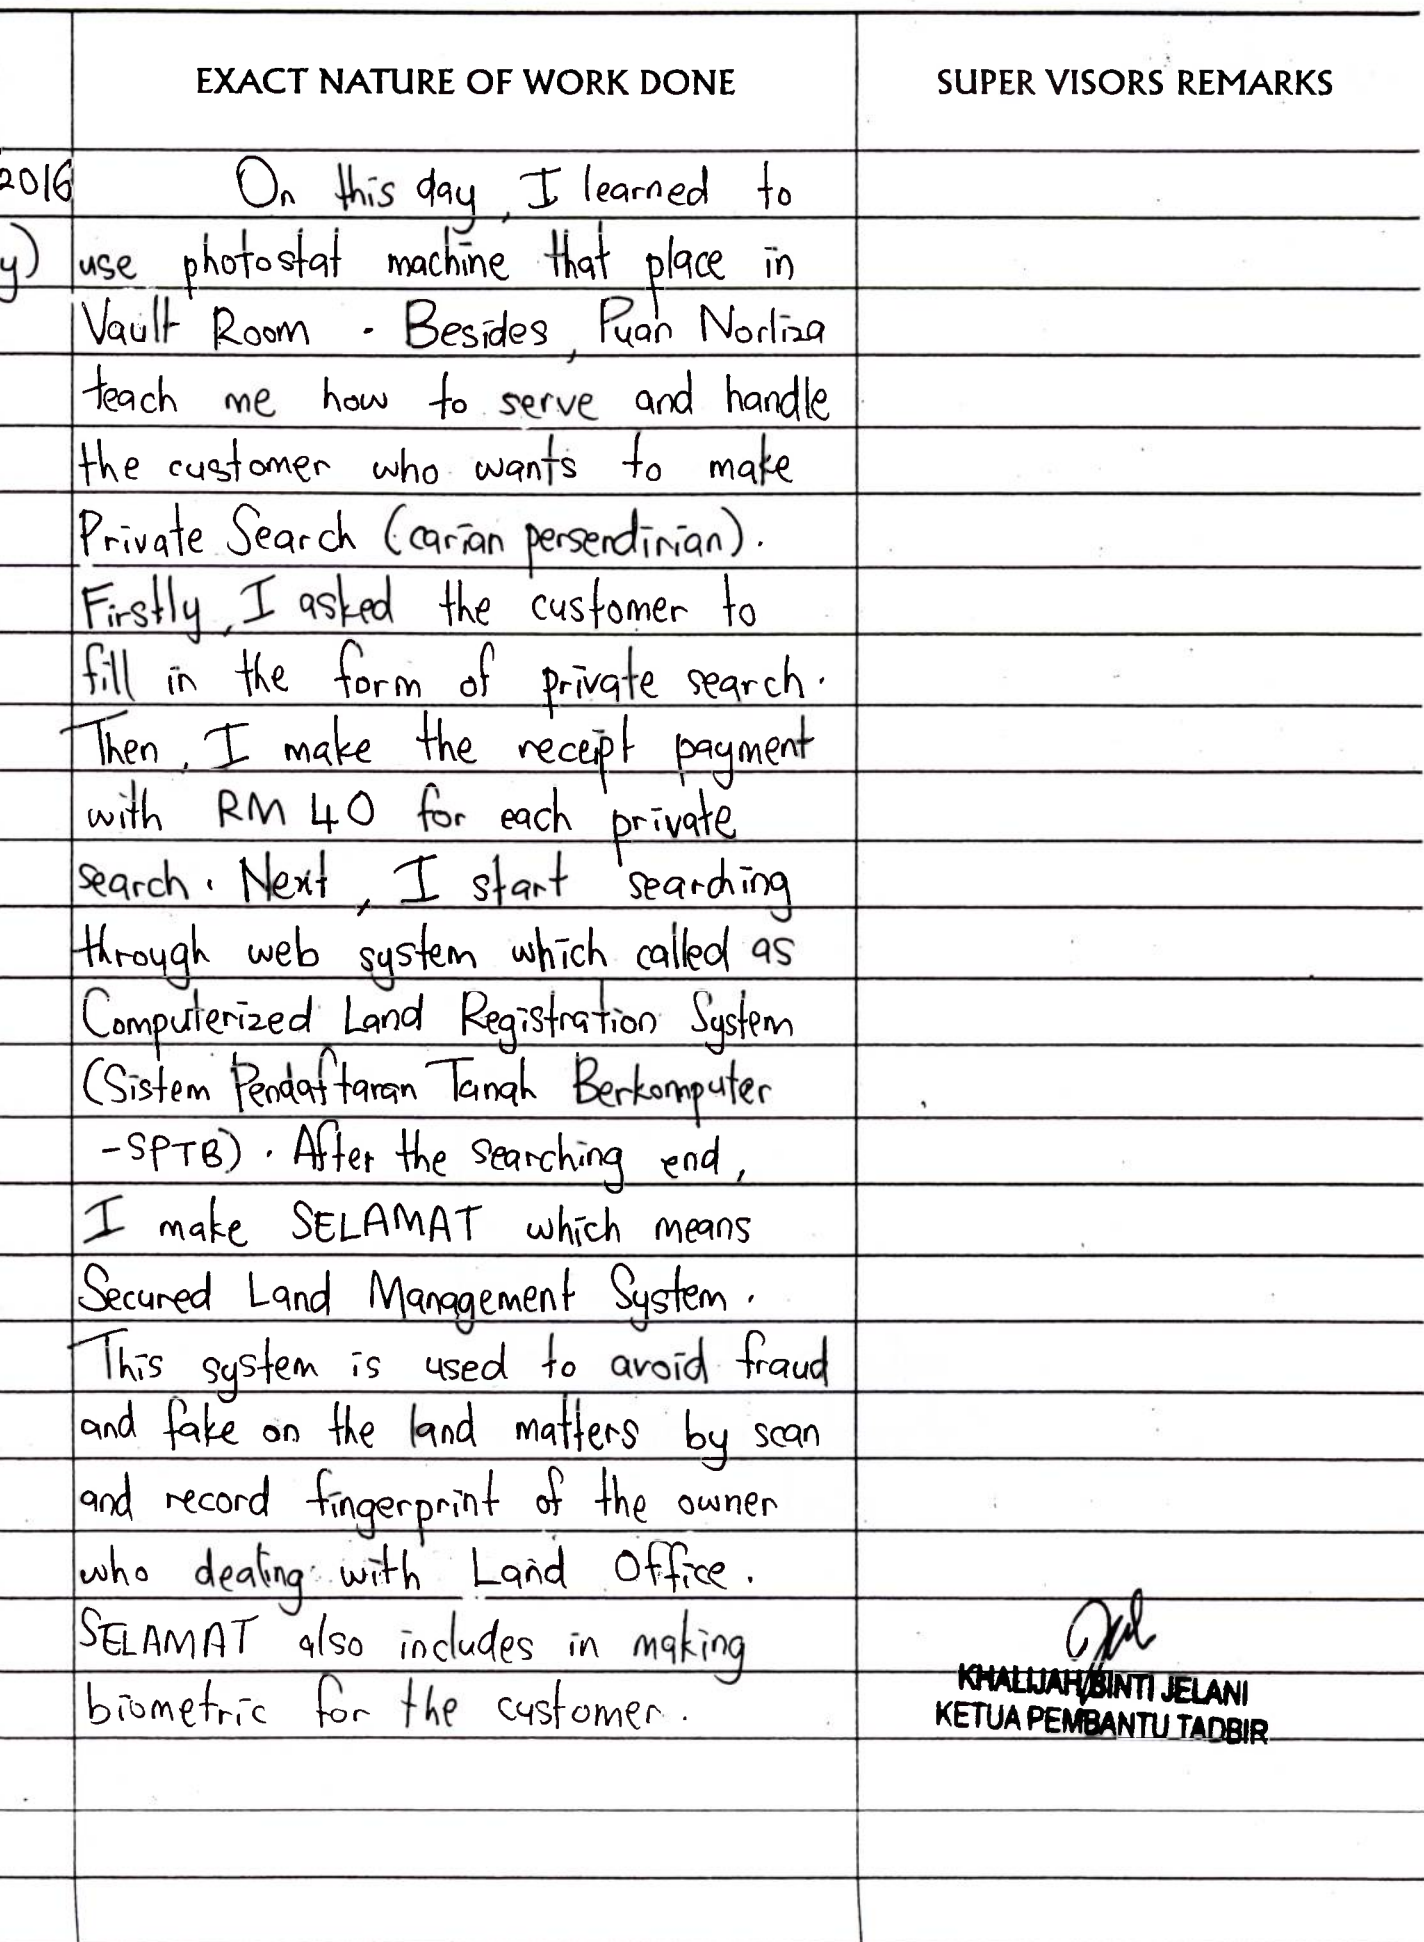 EXACT NATURE OF WORK DONE
SUPER VISORS REMARKS
2016 On this day, I learned to
y) use photostat machine that place in
Vault Room. Besides, Puan Norliza
teach me how to serve and handle
the customer who wants to make
Private Search (carian persendirian).
Firstly, I asked the customer to
fill in the form of private search.
Then, I make the receipt payment
with RM 40 for each private
search. Next, I start searching
through web system which called as
Computerized Land Registration System
(Sistem Pendaftaran Tanah Berkomputer
-SPTB). After the searching end,
I make SELAMAT which means
Secured Land Management System.
This system is used to avoid fraud
and fake on the land matters by scan
and record fingerprint of the owner
who dealing with Land Office.
SELAMAT also includes in making
biometric for the customer.
KHALIJAH BINTI JELANI
KETUA PEMBANTU TADBIR